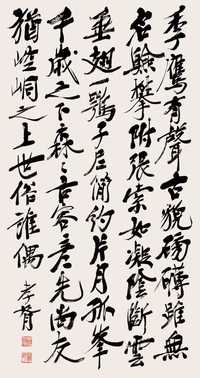 季鷹有聲古貌磅礴雖無
名驗攀附張索如凝陰斷雲
垂翅一鶚子尼簡約片月孤峯
千歲之下森〻古容彥先尚友
猶崆峒之上世俗誰偶
孝胥